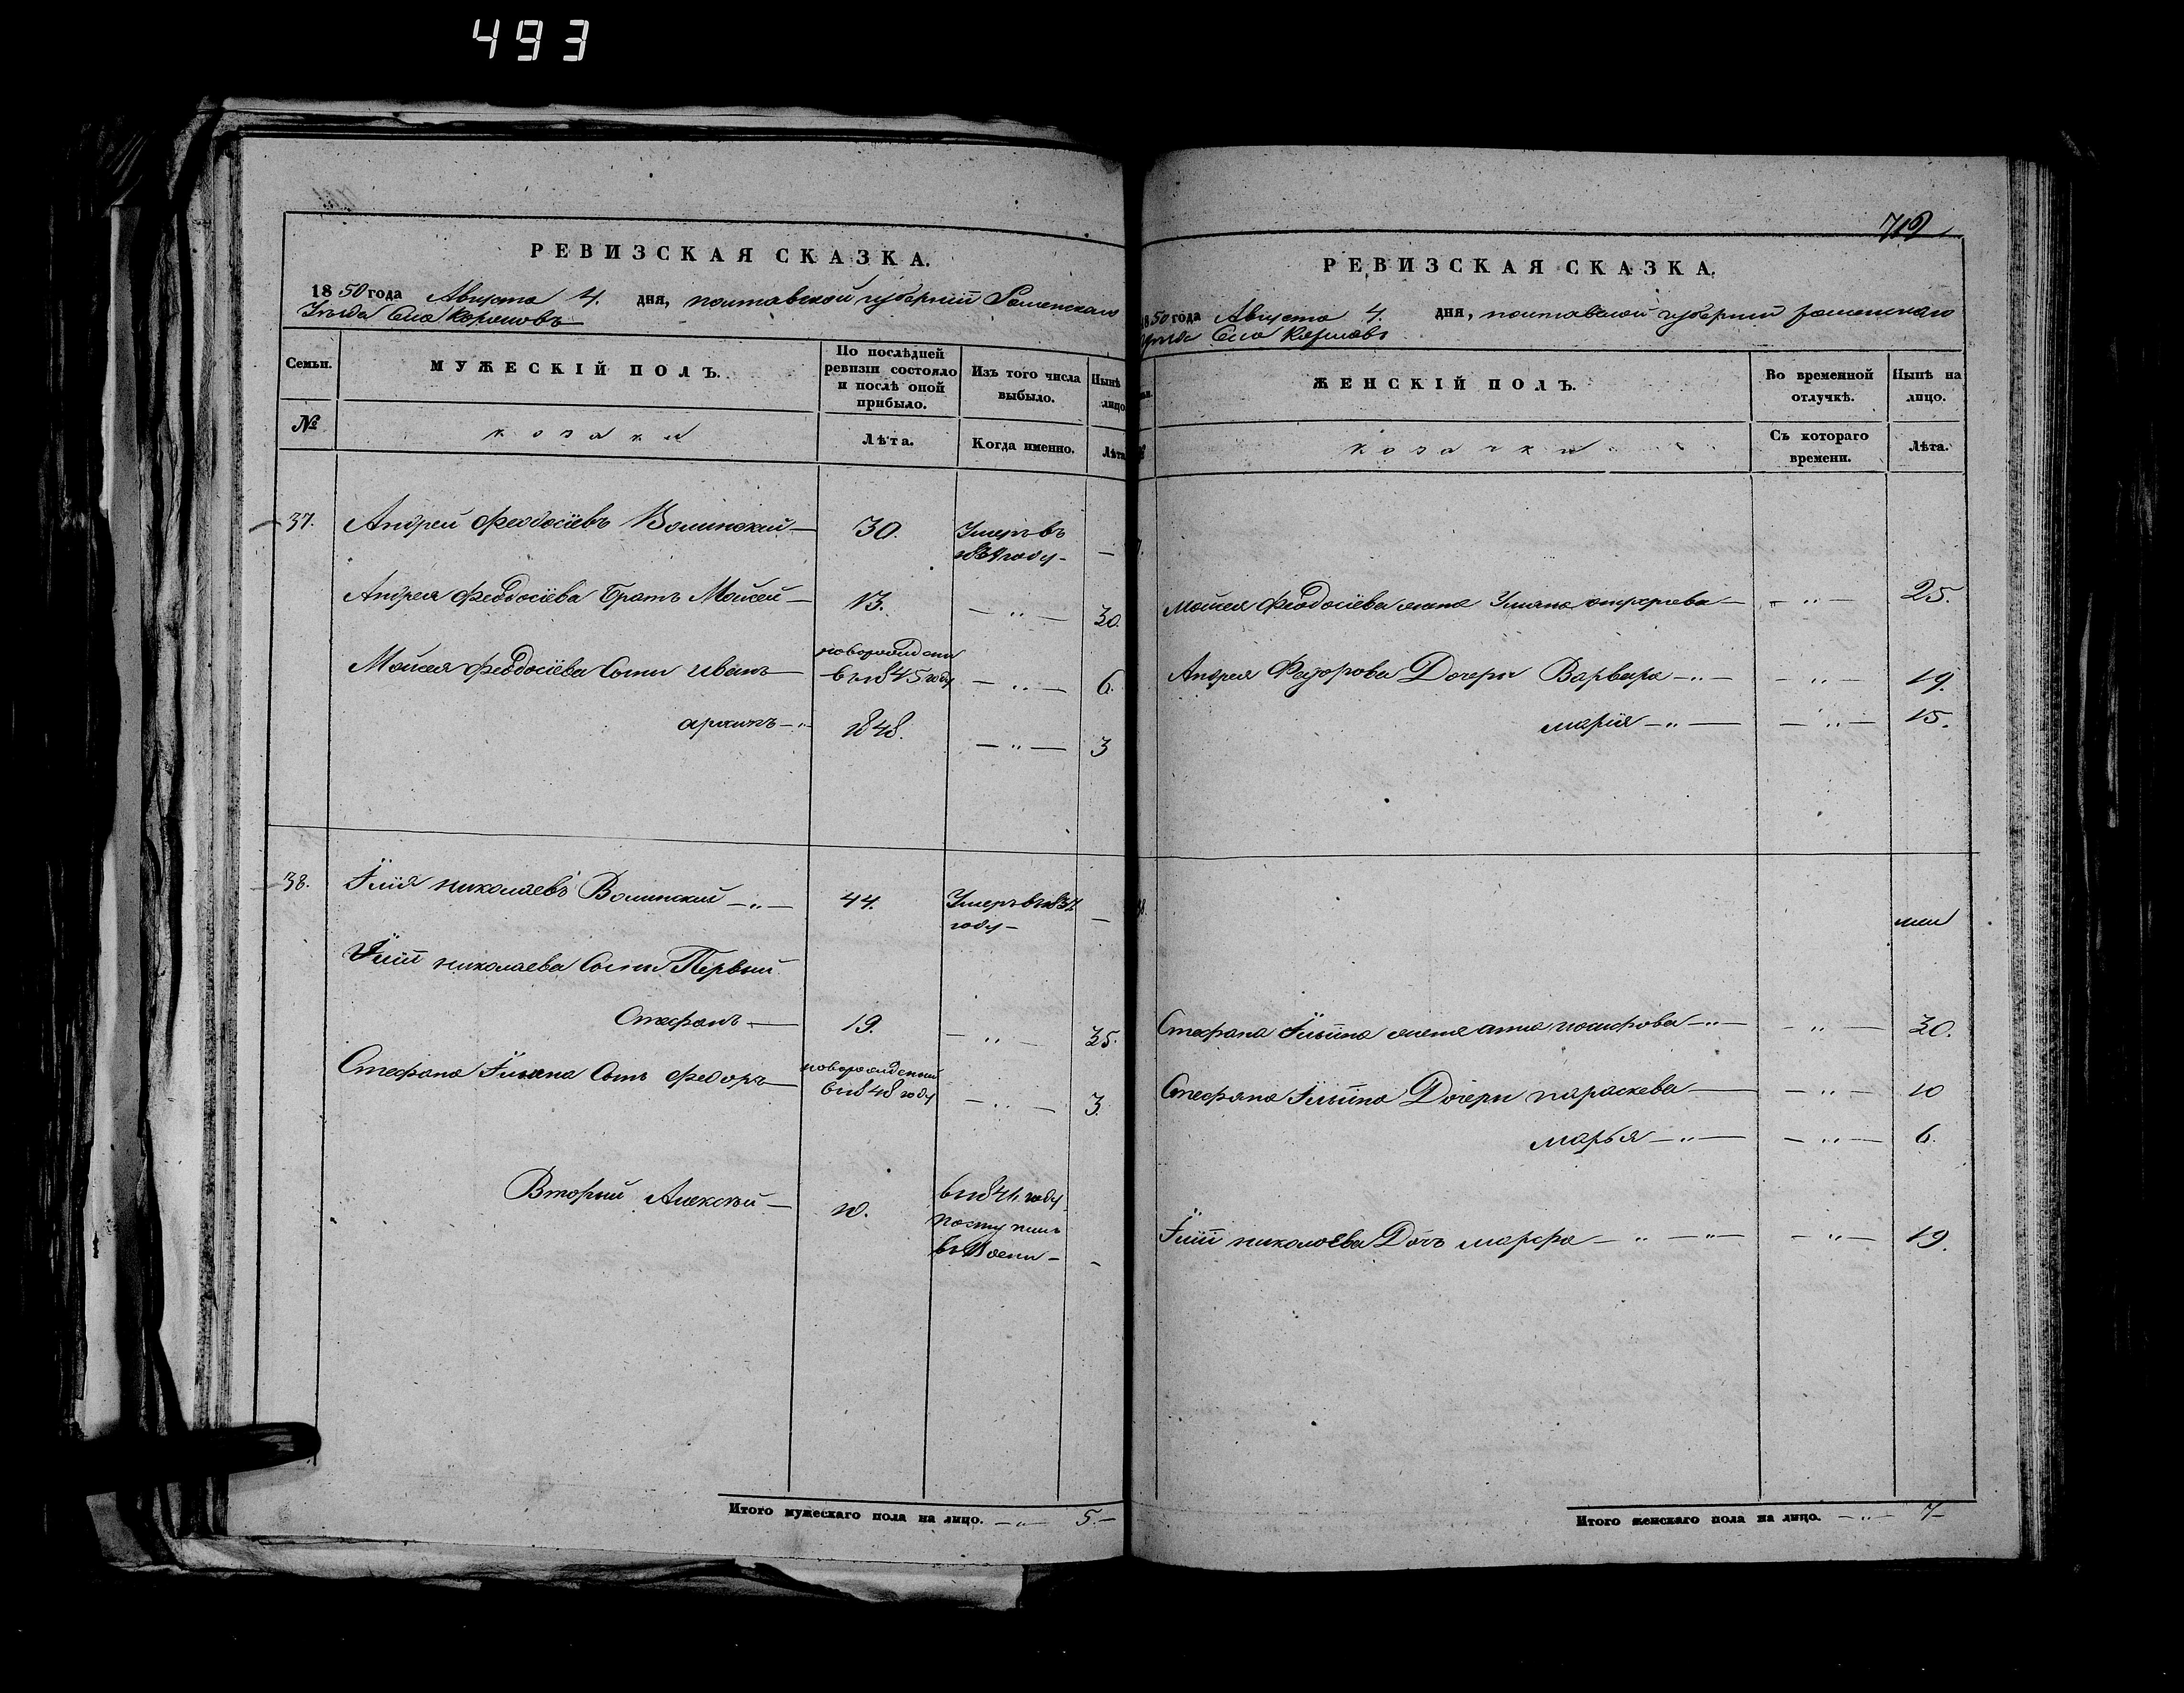 493
РЕВИЗСКАЯ СКАЗКА.
1850 года Августа 4. дня, полтавской губерніи Роменского
Уезда Села Коровинъ
Семьи.
МУЖЕСКІЙ ПОЛЪ.
По послѣдней
ревизіи состояло
и послѣ оной
прибыло.
Изъ того числа
выбыло.
Нынѣ
лицо
№
козаки
Лѣта.
Когда именно.
Лѣта
37.
Андрей Феодосіевъ Волинскій —
30.
Умеръ въ
году —
—
Андрея Феодосіева Братъ Мойсей —
13.
— „ —
30.
Мойсея Феодосіева Сыни Иванъ —
новорожденн
въ 1845 году
— „ —
6.
архипъ — „
1848.
— „ —
3
38.
Іллія николаевъ Волинский — „ —
44.
Умеръ въ 1837
году —
—
Ілліи николаева Сыни Первый
Стефанъ —
19.
— „ —
35.
Стефана Ільина Сынъ федоръ —
новорожденный
въ 1848 году
— „ —
3.
Вторый Алексѣй —
10.
въ 1841 году
поступилъ
въ Воени —
-
Итого мужескаго пола на лицо. — „ — 5. —
719
РЕВИЗСКАЯ СКАЗКА.
1850 года Августа 4. дня, полтавской губерніи роменского
уезда Села
ЖЕНСКІЙ ПОЛЪ.
Во временной
отлучкѣ.
Нынѣ на
лицо.
козачки
Съ котораго
времени.
Лѣта.
Мойсея Феодосіева жена Уліана —
— „ —
25.
Андрея Федорова Дочери Варвара — „ —
— „ —
19.
марія — „ —
— „ —
15.
38.
Стефана Ільина жена анна — „ —
— „ —
30.
Стефана Ільина Дочери параскева —
— „ —
10
марья — „ —
— „ —
6.
Ілліи николаева Дочь марфа — „ — „ —
— „ —
19.
Итого женскаго пола на лицо. — „ — 7 —